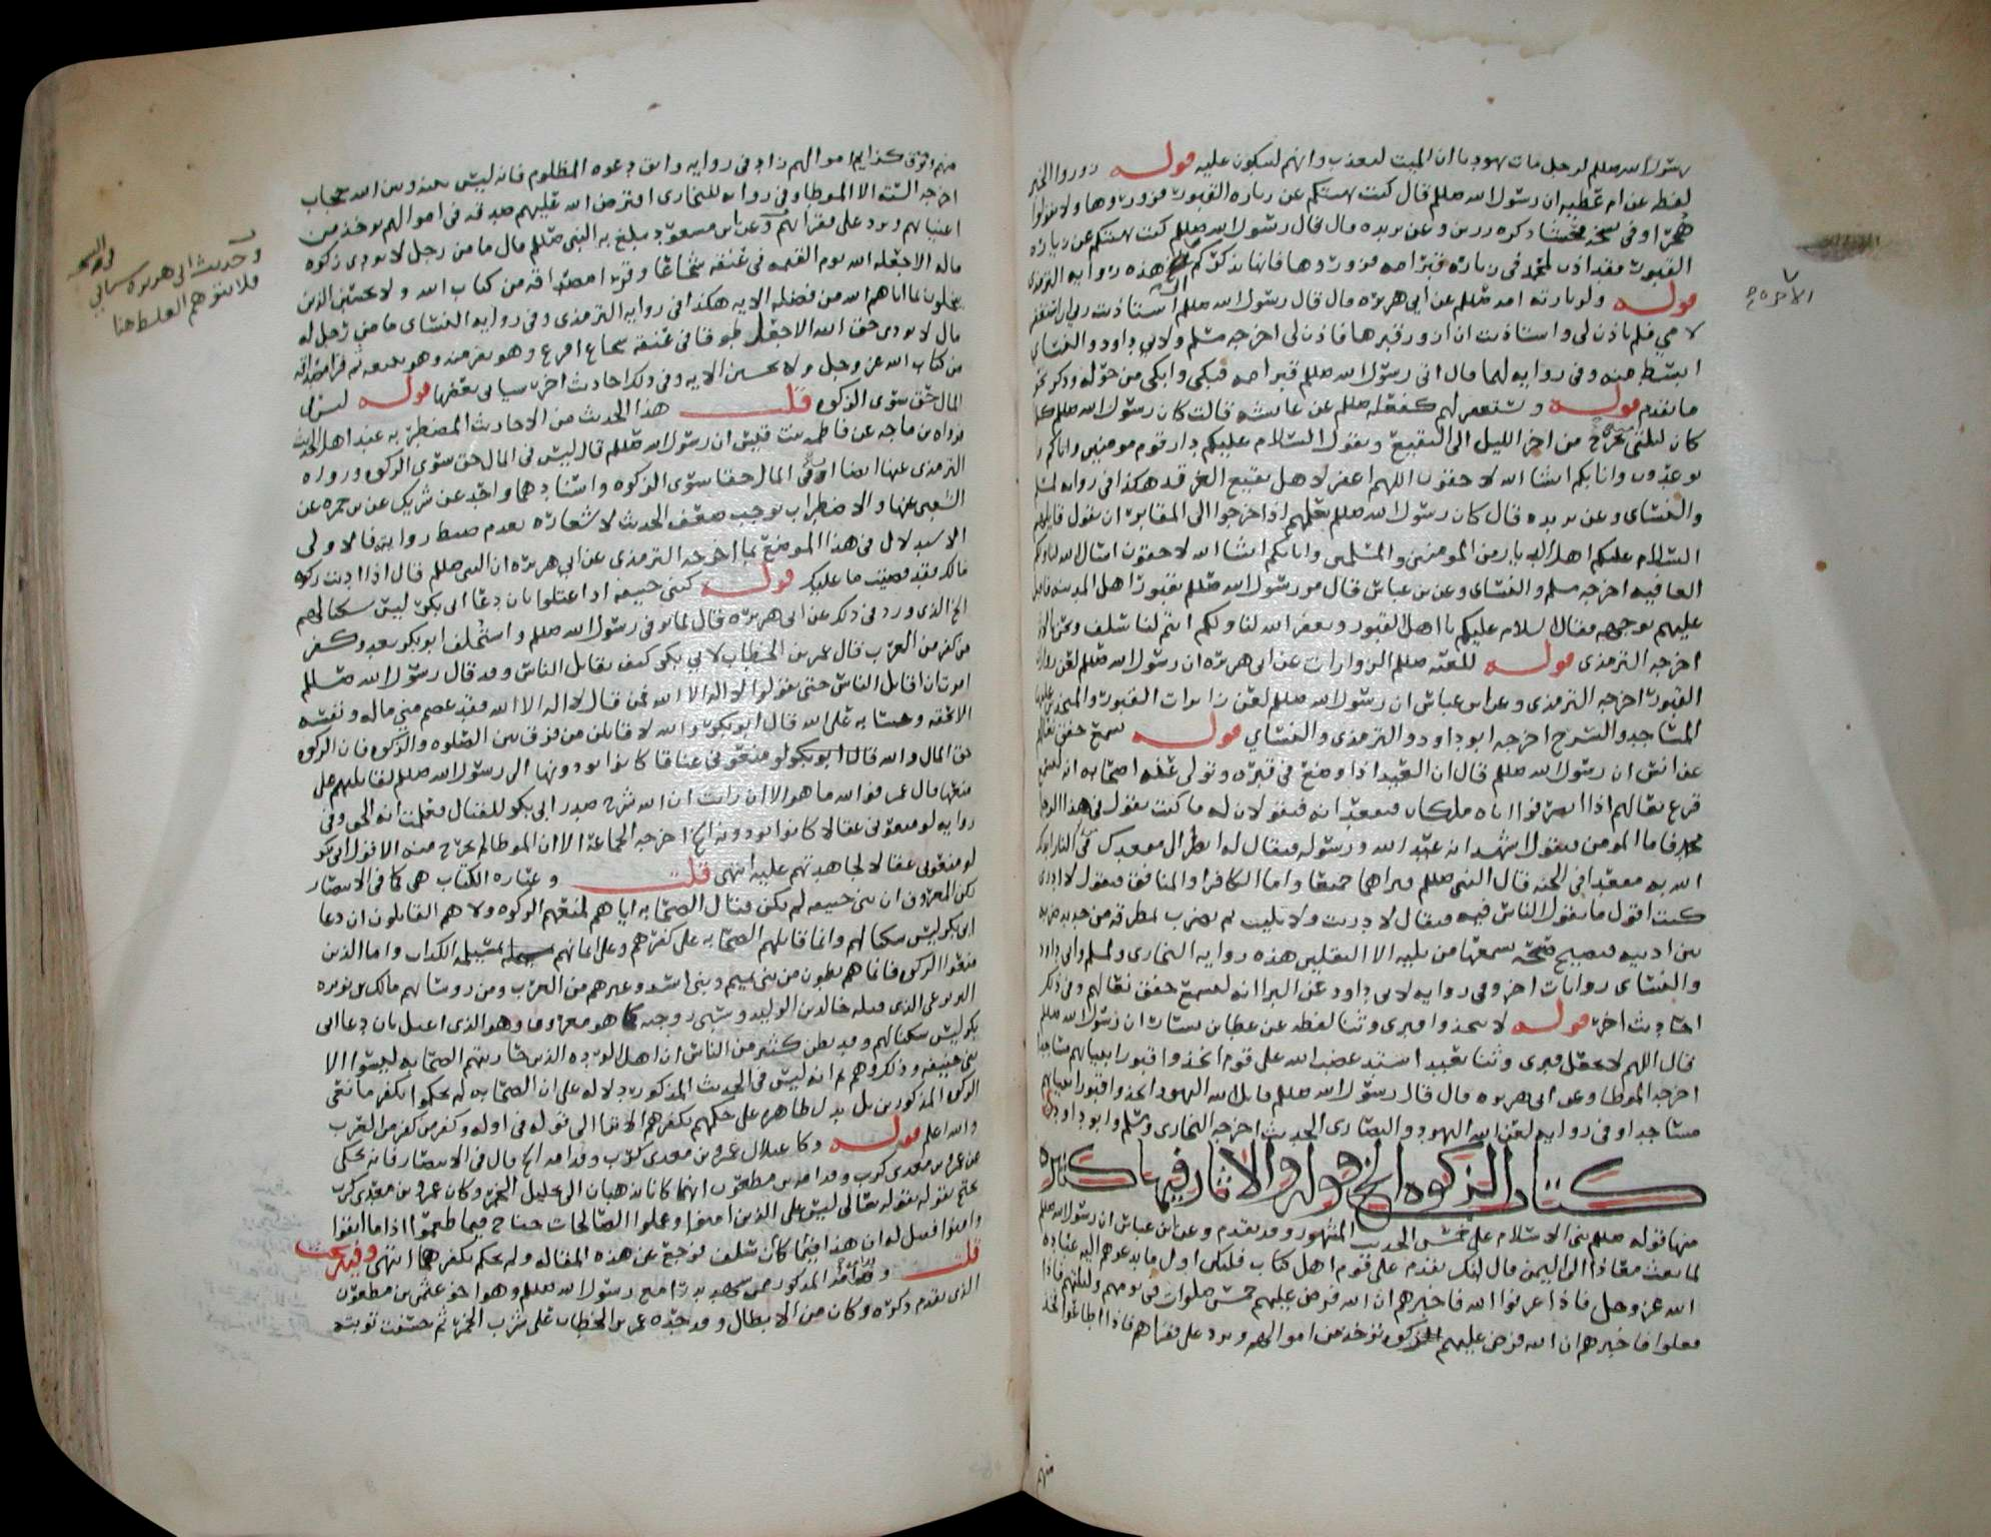 رسول الله صلعم لرجل مات يهوديا ان الميت ليعذب وانهم ليبكون عليه قوله زوروا الخبر
لفظه عن ام عطيه ان رسول الله صلعم قال كنت نهيتكم عن زياره القبور فزوروها ولا تقولوا
هجرا وفي نسخه ذكره رزين وعن بريده قال قال رسول الله صلعم كنت نهيتكم عن زياره
القبور فقد اذن لمحمد في زياره قبر امه فزوروها فانها تذكركم الاخره هذه روايه الترمذي
قوله ولزيارته امه صلعم عن ابي هريره قال قال رسول الله صلعم استاذنت ربي ان استغفر
لامي فلم ياذن لي واستاذنت ان ازور قبرها فاذن لي اخرجه مسلم ولابي داود والنسائي
ابسط منه وفي روايه لهما قال اتى رسول الله صلعم قبر امه فبكى وابكى من حوله وذكر نحو
ما تقدم قوله ويستغفر لهم كفعله صلعم عن عائشه قالت كان رسول الله صلعم كلما
كان ليلتي يخرج من اخر الليل الى البقيع ويقول السلام عليكم دار قوم مومنين واتاكم ما
توعدون وانا بكم انشا الله لاحقون اللهم اغفر لاهل بقيع الغرقد هكذا في روايه لمسلم
والنسائي وعن بريده قال كان رسول الله صلعم يعلمهم اذا خرجوا الى المقابر ان يقول قايلهم
السلام عليكم اهل الديار من المومنين والمسلمين وانا بكم انشا الله لاحقون اسال الله لنا ولكم
العافيه اخرجه مسلم والنسائي وعن بن عباس قال مر رسول الله صلعم بقبور اهل المدينه فاقبل
عليهم بوجهه فقال السلام عليكم يا اهل القبور ويغفر الله لنا ولكم انتم لنا سلف ونحن بالاثر
اخرجه الترمذي قوله للعنه صلعم الزوارات عن ابي هريره ان رسول الله صلعم لعن زوارات
القبور اخرجه الترمذي وعن ابن عباس ان رسول الله صلعم لعن زايرات القبور والمتخذين عليها
المساجد والسرج اخرجه ابو داود والترمذي والنسائي قوله سمع خفق نعالهم
عن انس ان رسول الله صلعم قال ان العبد اذا وضع في قبره وتولى عنه اصحابه انه ليسمع
قرع نعالهم اذا انصرفوا اتاه ملكان فيقعدانه فيقولان له ما كنت تقول في هذا الرجل
محمد فاما المومن فيقول اشهد انه عبد الله ورسوله فيقال له انظر الى مقعدك من النار ابدلك
الله به مقعدا في الجنه قال النبي صلعم فيراهما جميعا واما الكافر او المنافق فيقول لا ادري
كنت اقول ما يقول الناس فيه فيقال لا دريت ولا تليت ثم يضرب بمطرقه من حديد ضربه
بين اذنيه فيصيح صيحه يسمعها من يليه الا الثقلين هذه روايه البخاري ولمسلم وابي داود
والنسائي روايات اخر وفي روايه لابي داود عن البرا انه ليسمع خفق نعالهم وفي ذلك
احاديث اخر قوله لا تتخذوا قبري وثنا لفظه عن عطا بن يسار ان رسول الله صلعم
قال اللهم لا تجعل قبري وثنا يعبد اشتد غضب الله على قوم اتخذوا قبور انبيايهم مساجد
اخرجه الموطا وعن ابي هريره قال قال رسول الله صلعم قاتل الله اليهود اتخذوا قبور انبيايهم
مساجد وفي روايه لعن الله اليهود والنصارى الحديث اخرجه البخاري ومسلم وابو داود
كتاب الزكوه الخ قوله والاثار فيها كثيره
منها قوله صلعم بني الاسلام على خمس الحديث المشهور وقد تقدم وعن ابن عباس ان رسول الله صلعم
لما بعث معاذا الى اليمن قال انك تقدم على قوم اهل كتاب فليكن اول ما تدعوهم اليه عباده
الله عز وجل فاذا عرفوا الله فاخبرهم ان الله فرض عليهم خمس صلوات في يومهم وليلتهم فاذا
فعلوا فاخبرهم ان الله فرض عليهم الزكوه توخذ من اموالهم وترد على فقرائهم فاذا اطاعوا فخذ
منهم
الاخره صح
منهم وتوق كرايم اموالهم زاد في روايه واتق دعوه المظلوم فانه ليس بينه وبين الله حجاب
اخرجه السته الا الموطا وفي روايه للبخاري افترض الله عليهم صدقه في اموالهم توخذ من
اغنيائهم وترد على فقرائهم وعن ابن مسعود يبلغ به النبي صلعم قال ما من رجل لا يودي زكوه
ماله الا جعله الله يوم القيمه في عنقه شجاعا وقرا مصداقه من كتاب الله ولا يحسبن الذين
يبخلون بما اتاهم الله من فضله الايه هكذا في روايه الترمذي وفي روايه النسائي ما من رجل له
مال لا يودي حق الله الا جعل طوقا في عنقه شجاع اقرع وهو يفر منه وهو يتبعه ثم قرا مصداقه
من كتاب الله عز وجل ولا تحسبن الايه وفي ذلك احاديث اخر سياتي بعضها قوله ليس في
المال حق سوى الزكوه قلت هذا الحديث من الاحاديث المضطربه عند اهل الحديث
فرواه بن ماجه عن فاطمه بنت قيس ان رسول الله صلعم قال ليس في المال حق سوى الزكوه ورواه
الترمذي عنها ايضا ان في المال حقا سوى الزكوه واسنادهما واحد عن شريك عن بن حمزه عن
الشعبي عنها والاضطراب يوجب ضعف الحديث لاشعاره بعدم ضبط روايته فالاولى
الاستدلال في هذا الموضع بما اخرجه الترمذي عن ابي هريره ان النبي صلعم قال اذا اديت زكوه
مالك فقد قضيت ما عليك قوله كبني حنيفه اذ اعتلوا بان دعا ابي بكر ليس سكنا لهم
الخ الذي ورد في ذلك عن ابي هريره قال لما توفي رسول الله صلعم واستخلف ابو بكر بعده وكفر
من كفر من العرب قال عمر بن الخطاب لابي بكر كيف تقاتل الناس وقد قال رسول الله صلعم
امرت ان اقاتل الناس حتى يقولوا لا اله الا الله فمن قال لا اله الا الله فقد عصم مني ماله ونفسه
الا بحقه وحسابه على الله قال ابو بكر والله لاقاتلن من فرق بين الصلوه والزكوه فان الزكوه
حق المال والله قال ابو بكر لو منعوني عناقا كانوا يودونها الى رسول الله صلعم لقاتلتهم على
منعها قال عمر فوالله ما هو الا ان رايت ان الله شرح صدر ابي بكر للقتال فعلمت انه الحق وفي
روايه لو منعوني عقالا كانوا يودونه الخ اخرجه الجماعه الا ان الموطا لم يخرج منه الا قول ابي بكر
لو منعوني عقالا لجاهدتهم عليه انتهى قلت وعباره الكتاب هي كما في الانتصار
لكن المعروف ان بني حنيفه لم يكن قتال الصحابه اياهم لمنعهم الزكوه ولا هم القايلون ان دعا
ابي بكر ليس سكنا لهم وانما قاتلهم الصحابه على كفرهم وعلى ايمانهم بمسيلمه الكذاب واما الذين
منعوا الزكوه فانما هم بطون من بني تميم وبني اسد وغيرهم من العرب ومن روسائهم مالك بن نويره
اليربوعي الذي قتله خالد بن الوليد وسبى زوجته كما هو معروف وهو الذي اعتل بان دعا ابي
بكر ليس سكنا لهم وقد يظن كثير من الناس ان اهل الرده الذين حاربتهم الصحابه ليسوا الا
بني حنيفه وذكروهم ثم انه ليس في الحديث المذكور دلاله على ان الصحابه لم يحكموا بكفر مانعي
الزكوه المذكورين بل يدل ظاهره على حكمهم بكفرهم الا ترى الى قوله في اوله وكفر من كفر من العرب
والله اعلم قوله وكاعتلال عمرو بن معدي كرب وقدامه الخ قال في الانتصار فانه يحكى
عن عمرو بن معدي كرب وقدامه بن مظعون انهما كانا يذهبان الى تحليل الخمر وكان عمرو بن معدي كرب
يحتج بقوله تعالى ليس على الذين امنوا وعملوا الصالحات جناح فيما طعموا اذا ما اتقوا
وامنوا فقيل له ان هذا فيما كان سلف فرجع عن هذه المقاله ولم يحكم بكفرهما انتهى
قلت وقدامه المذكور ممن شهد بدرا مع رسول الله صلعم وهو اخو عثمن بن مظعون
الذي تقدم ذكره وكان من الابطال وقد حده عمر بن الخطاب على شرب الخمر ثم حسنت توبته
وحديث ابي هريره سياتي
فلا يتوهم الغلط هنا